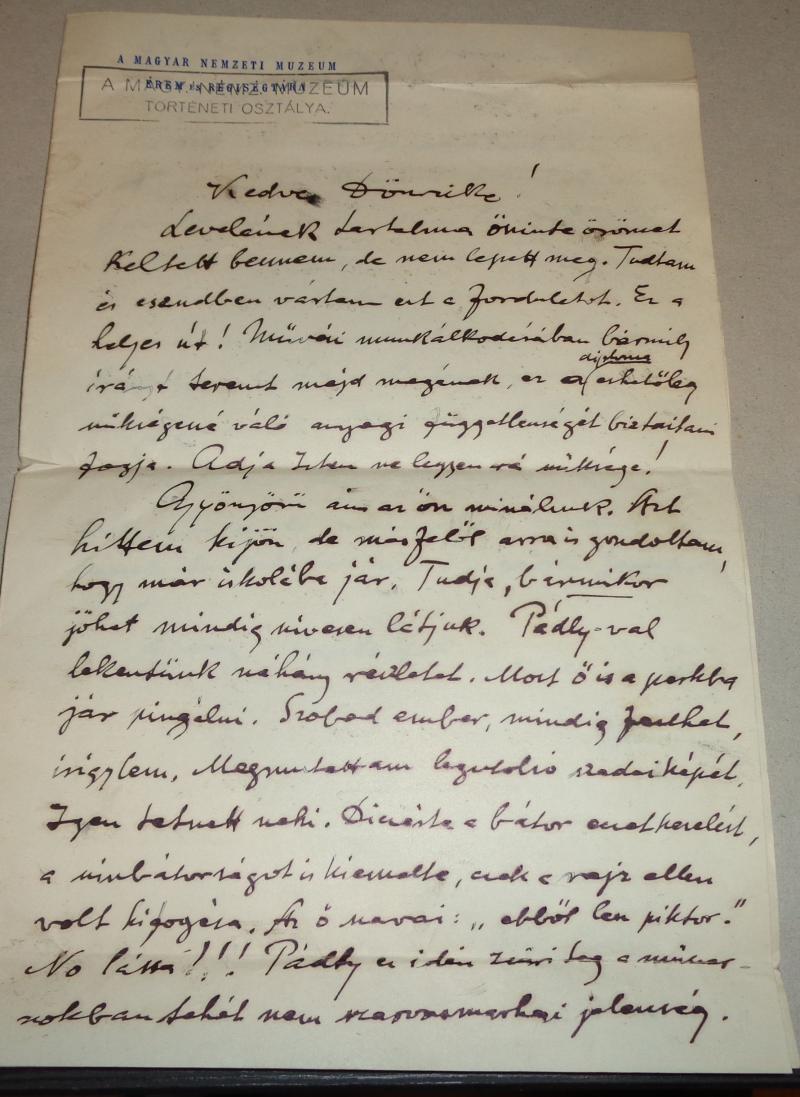 A MAGYAR NEMZETI MUZEUM
ÉREM és RÉGISÉGTÁRA
A MAGY. NEMZ. MÚZEUM
TÖRTÉNETI OSZTÁLYA.
Kedves !
Levelének tartalma őszinte örömet
keltett bennem, de nem lepett meg. Tudtam
és csendben vártam ezt a fordulatot. Ez a
helyes út! Művészi munkálkodásában bármily
diploma
irányt teremt majd magának, ez a esetleg
szükségessé váló anyagi függetlenségét biztosítani
fogja. Adja Isten ne legyen rá szüksége!
Gyönyörű ám az ősz minálunk. Azt
hittem kijön, de másfelől arra is gondoltam,
hogy már iskolába jár. Tudja, bármikor
jöhet mindig szívesen látjuk. Pádly-val
lekentünk néhány részletet. Most ő is a parkba
jár pingálni. Szabad ember, mindig festhet,
irigylem. Megmutattam legutolsó szadai képét.
Igen tetszett neki. Dicsérte a bátor ecetkezelést,
a színbátorságot is kiemelte, csak a rajz ellen
volt kifogása. Az ő szavai: „ebből lesz piktor."
No lássa!!! Pádly ez idén zsüri tag a műcsar-
nokban tehát nem szarvasmarhai jelenség.